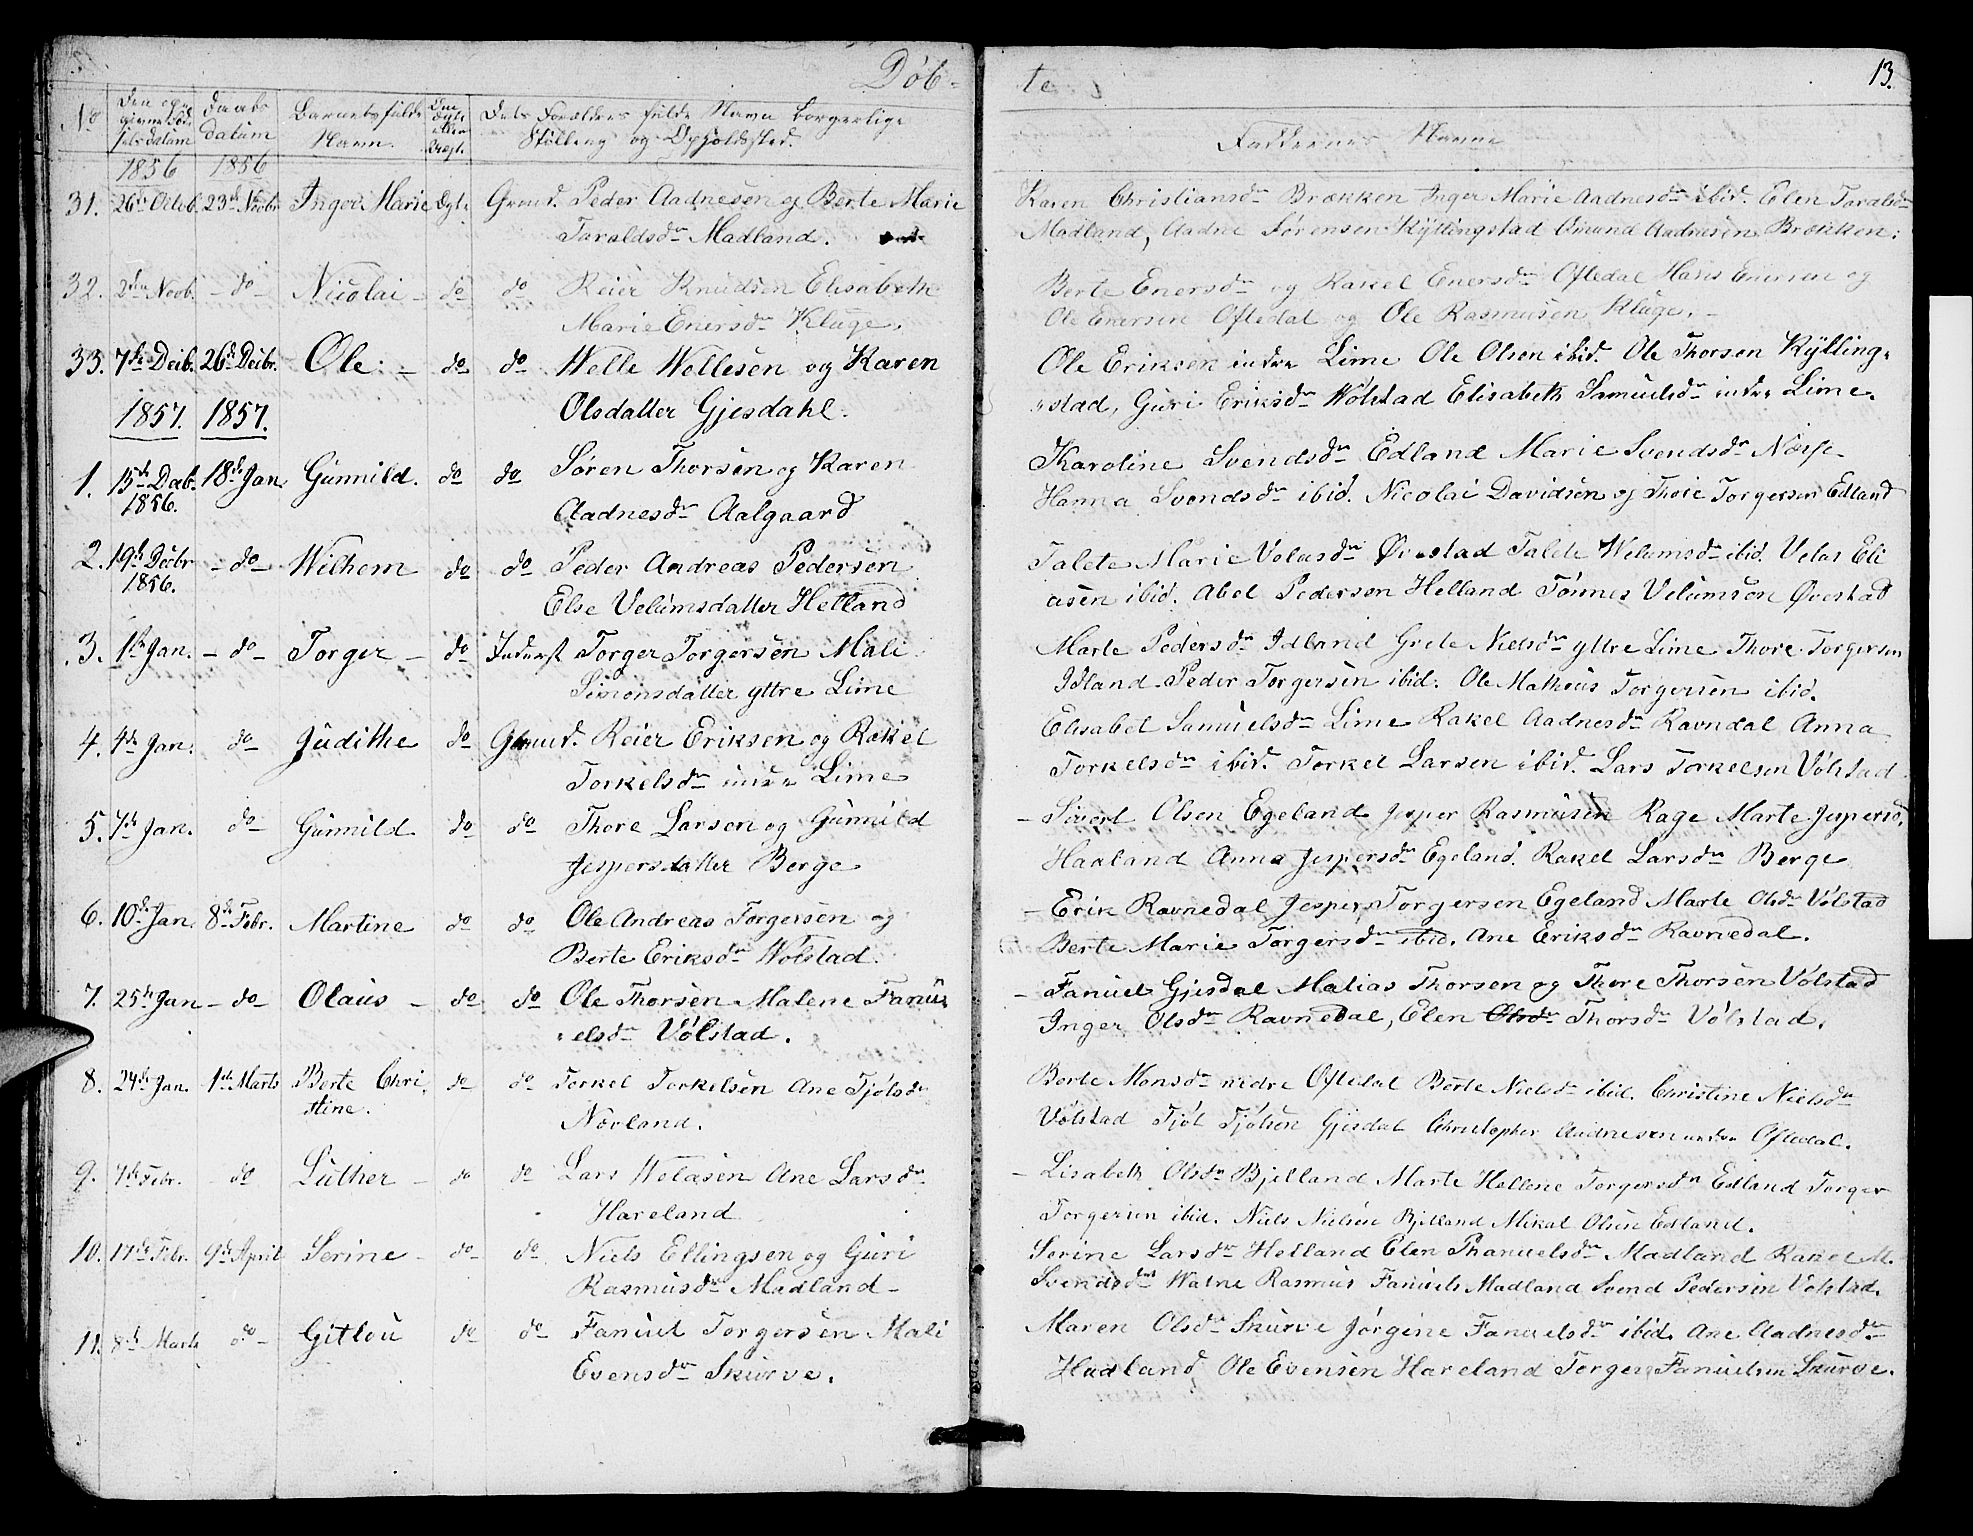 Døb-
te
13.
No
Den op-
givne Fød-
selsdatum
Daabs
datum
Barnets fulde
Navn.
Om
Ægte
eller
Uægt.
Dets Forældres fulde Navn borgerlige
Stilling og Opholdssted.
Faddernes Navne
1856 1856
31. 26de Octob. 23de Novbr Inger Marie Ægte Grmd. Peder Aadnesen og Berte Marie
Taraldsdr Madland.
Karen Christiansdr Brækken Inger Marie Aadnesdr ibid. Elen Taralsdr
Madland, Aadne Sørensen Kyllingstad Omund Aadnesen Brækken.
32. 2den Novb. - do - Nicolai - do do Reier Knudsen Elisabeth
Marie Enersdr Kluge.
Berte Enersdr og Rakel Enersdr Oftedal Hans Enersen og
Ole Enersen Oftedal og Ole Rasmusen Kluge. -
33. 7de Decb. 26de Decbr. Ole: - do do Welle Wellesen og Karen
Olsdatter Gjesdahl.
Ole Eriksen indre Lime Ole Olsen ibid. Ole Thorsen Kylling-
stad, Guri Eriksdr Wølstad Elisabeth Samuelsdr indre Lime.
1857. 1857.
1. 15de Decb. 18de Jan. Gunnild. do do Søren Thorsen og Karen
1856.
Aadnesdr Aalgaard
Karoline Svendsdr Edland Marie Svendsdr Næse
Hanna Svendsdr ibid. Nicolai Davidsen og Thore Torgersen Edland
2. 19de Decbr - do - Wilhem do do Peder Andreas Pedersen
1856.
Else Velumsdatter Hetland
Talete Marie Velasdr Øvestad Talete Welumsdr ibid. Velas Eli
asen ibid. Abel Pedersen Helland Tønnes Velumsen Øvestad
3. 1ste Jan. - do - Torger - do Inderst Torger Torgersen Mali
Simonsdatter yttre Lime
Marte Pedersdr Idland Grete Nielsdr yttre Lime Thore Torgersen
Idland Peder Torgersen ibid. Ole Matheus Torgersen ibid.
4. 4de Jan. do Judithe do Grmd. Reier Eriksen og Rakel
Torkelsdr indre Lime
Elisabet Samuelsdr Lime Rakel Aadnesdr Ravndal Anna
Torkelsdr ibid. Torkel Larsen ibid. Lars Torkelsen Vølstad
5. 7de Jan. do - Gunnild do do Thore Larsen og Gunnild
Jespersdatter Berge
- Sivert Olsen Egeland Jesper Rasmusen Rage Marte Jespersd.
Haaland Anna Jespersdr Egeland. Rakel Larsdr Berge
6. 10de Jan. 8de Febr. Martine do do Ole Andreas Torgersen og
Berte Eriksdr Wølstad.
- Erik Ravnedal Jesper Torgersen Egeland Marte Olsdr Vølstad
Berte Marie Torgersdr ibid. Ane Eriksdr Ravnedal.
7. 25de Jan - do - Olaus - do do Ole Thorsen Malene Fanu-
elsdr Vølstad.
- Fanuel Gjesdal Malias Thorsen og Thore Thorsen Vølstad
Inger Olsdr Ravnedal, Elen Olsdr Thorsdr Vølstad.
8. 24de Jan. 1ste Marts Berte Chri- do do Torkel Torkelsen Ane Tjølsdr
stine.
Norland.
Berte Monsdr nedre Oftedal Berte Nielsdr ibid. Christine Nielsdr
Vølstad Tjøl Tjølsen Gjesdal Christopher Aadnesen nedre Oftedal.
9. 7de Febr. - do Luther - do do Lars Welasen Ane Larsdr
Hareland
- Lisabeth Olsdr Bjelland Marte Hellene Torgersdr Edland Torger
Torgersen ibid. Niels Nielsen Bjelland Mikal Olsen Edland.
10. 17de Febr. 9de April Serine - do - do Niels Ellingsen og Guri
Rasmusdr Madland -
Serine Larsdr Helland Elen Phanuelsdr Madland Rakel M.
Svendsdr Watne Rasmus Fanuels Madland Svend Pedersen Vølstad.
11. 8de Marts do - Gitlou do do Fanuel Torgersen Mali
Evensdr Skurve.
Maren Olsdr Skurve Jørgine Fanuelsdr ibid. Ane Aadnesdr
Hadland Ole Evensen Hareland Torger Fanuelsen Skurve.